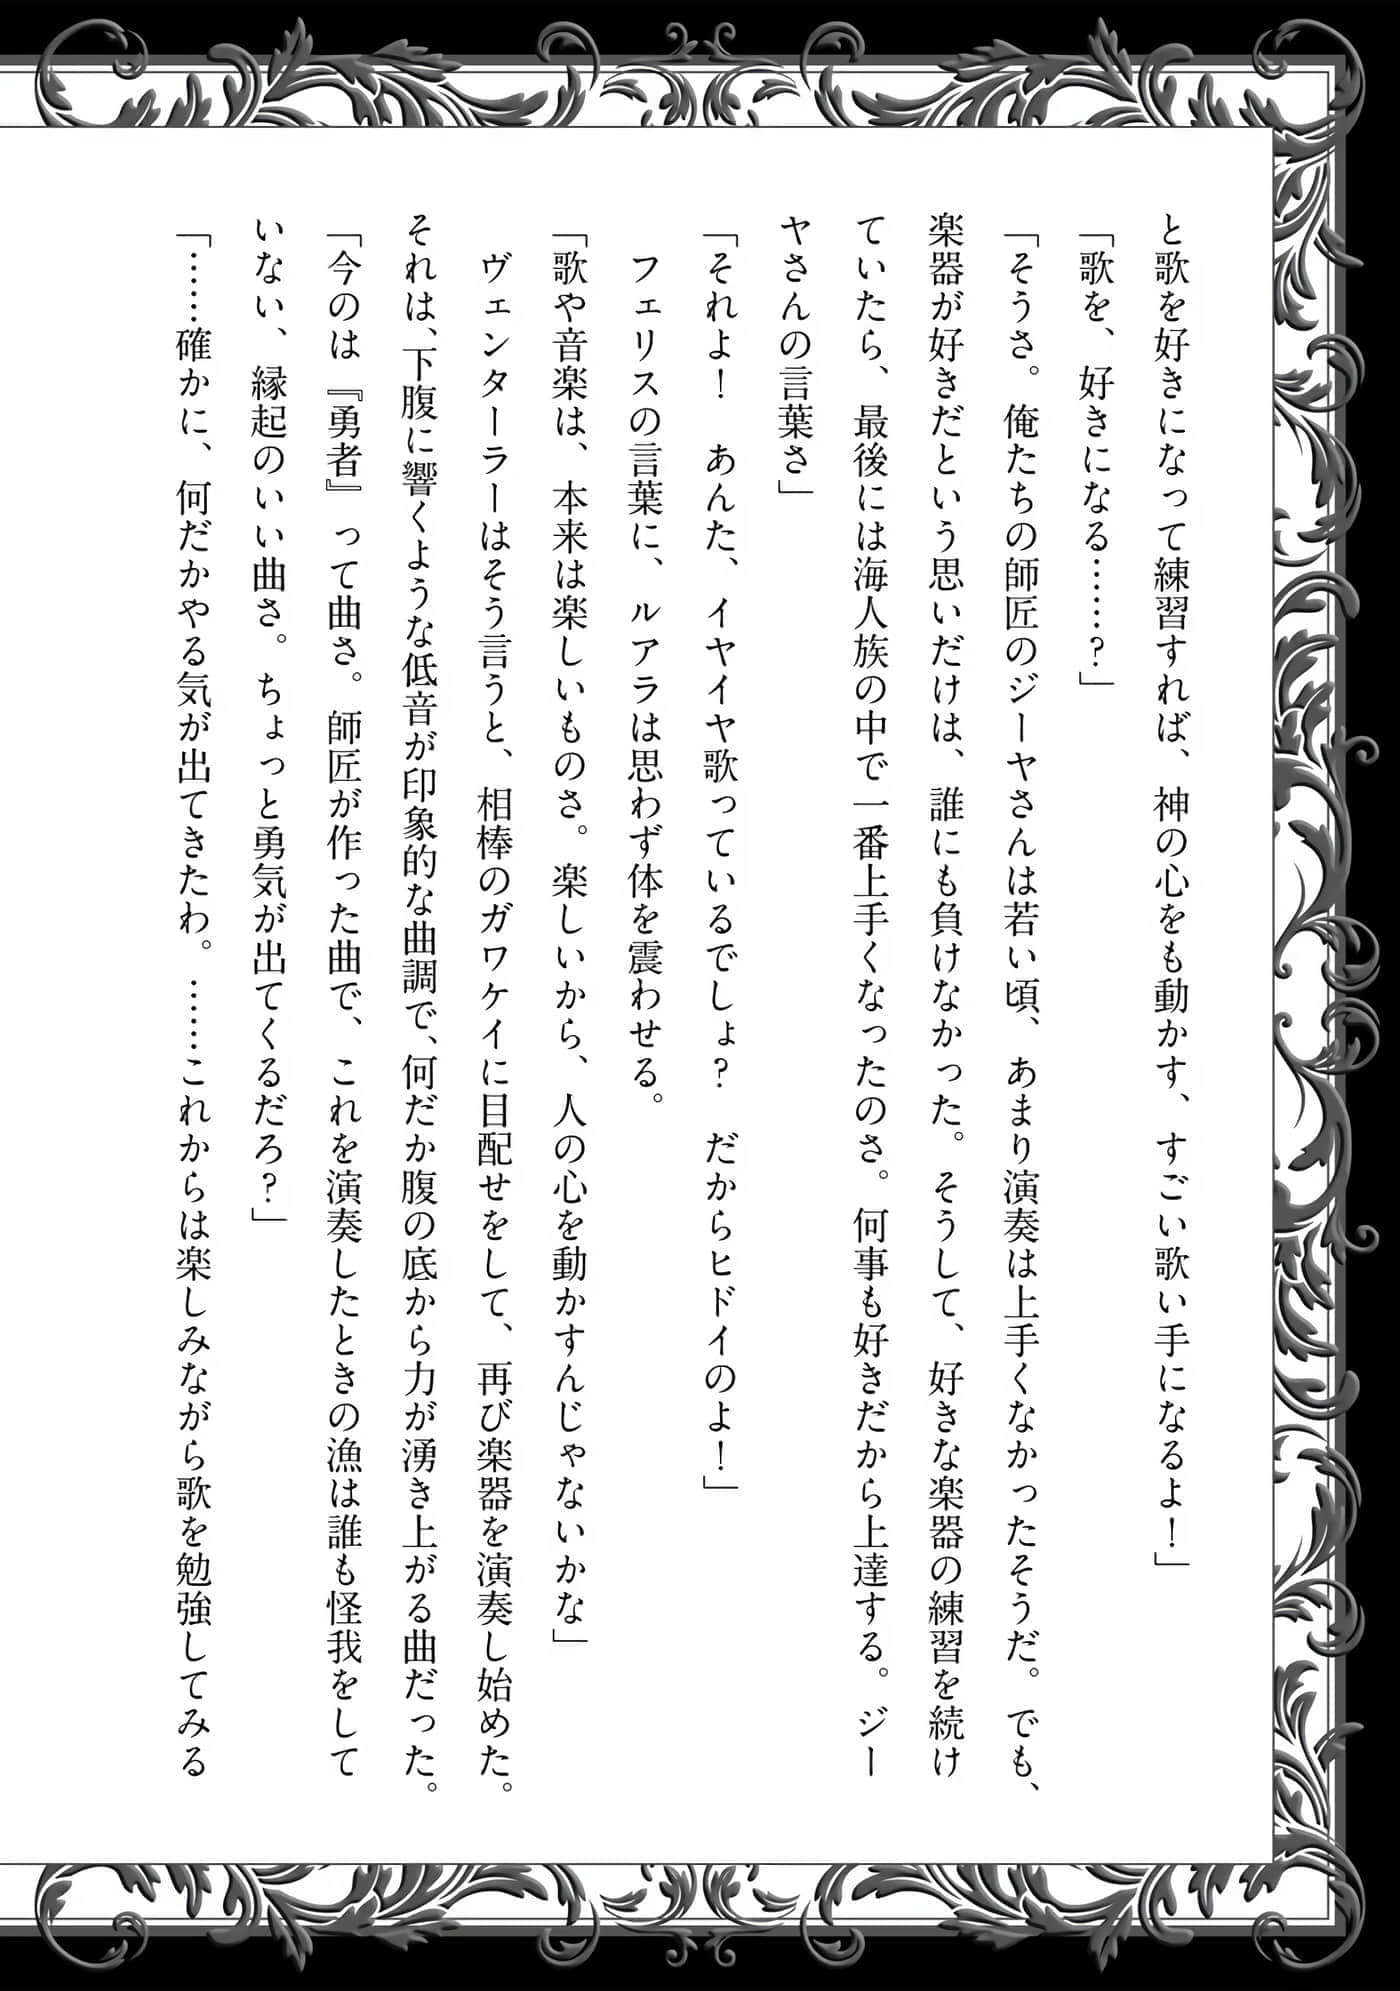 と歌を好きになって練習すれば、神の心をも動かす、すごい歌い手になるよ！」
「歌を、好きになる……？」
「そうさ。俺たちの師匠のジーヤさんは若い頃、あまり演奏は上手くなかったそうだ。でも、
楽器が好きだという思いだけは、誰にも負けなかった。そうして、好きな楽器の練習を続け
ていたら、最後には海人族の中で一番上手くなったのさ。何事も好きだから上達する。ジー
ヤさんの言葉さ」
「それよ！　あんた、イヤイヤ歌っているでしょ？　だからヒドイのよ！」
　フェリスの言葉に、ルアラは思わず体を震わせる。
「歌や音楽は、本来は楽しいものさ。楽しいから、人の心を動かすんじゃないかな」
　ヴェンターラーはそう言うと、相棒のガワケイに目配せをして、再び楽器を演奏し始めた。
それは、下腹に響くような低音が印象的な曲調で、何だか腹の底から力が湧き上がる曲だった。
「今のは『勇者』って曲さ。師匠が作った曲で、これを演奏したときの漁は誰も怪我をして
いない、縁起のいい曲さ。ちょっと勇気が出てくるだろ？」
「……確かに、何だかやる気が出てきたわ。……これからは楽しみながら歌を勉強してみる